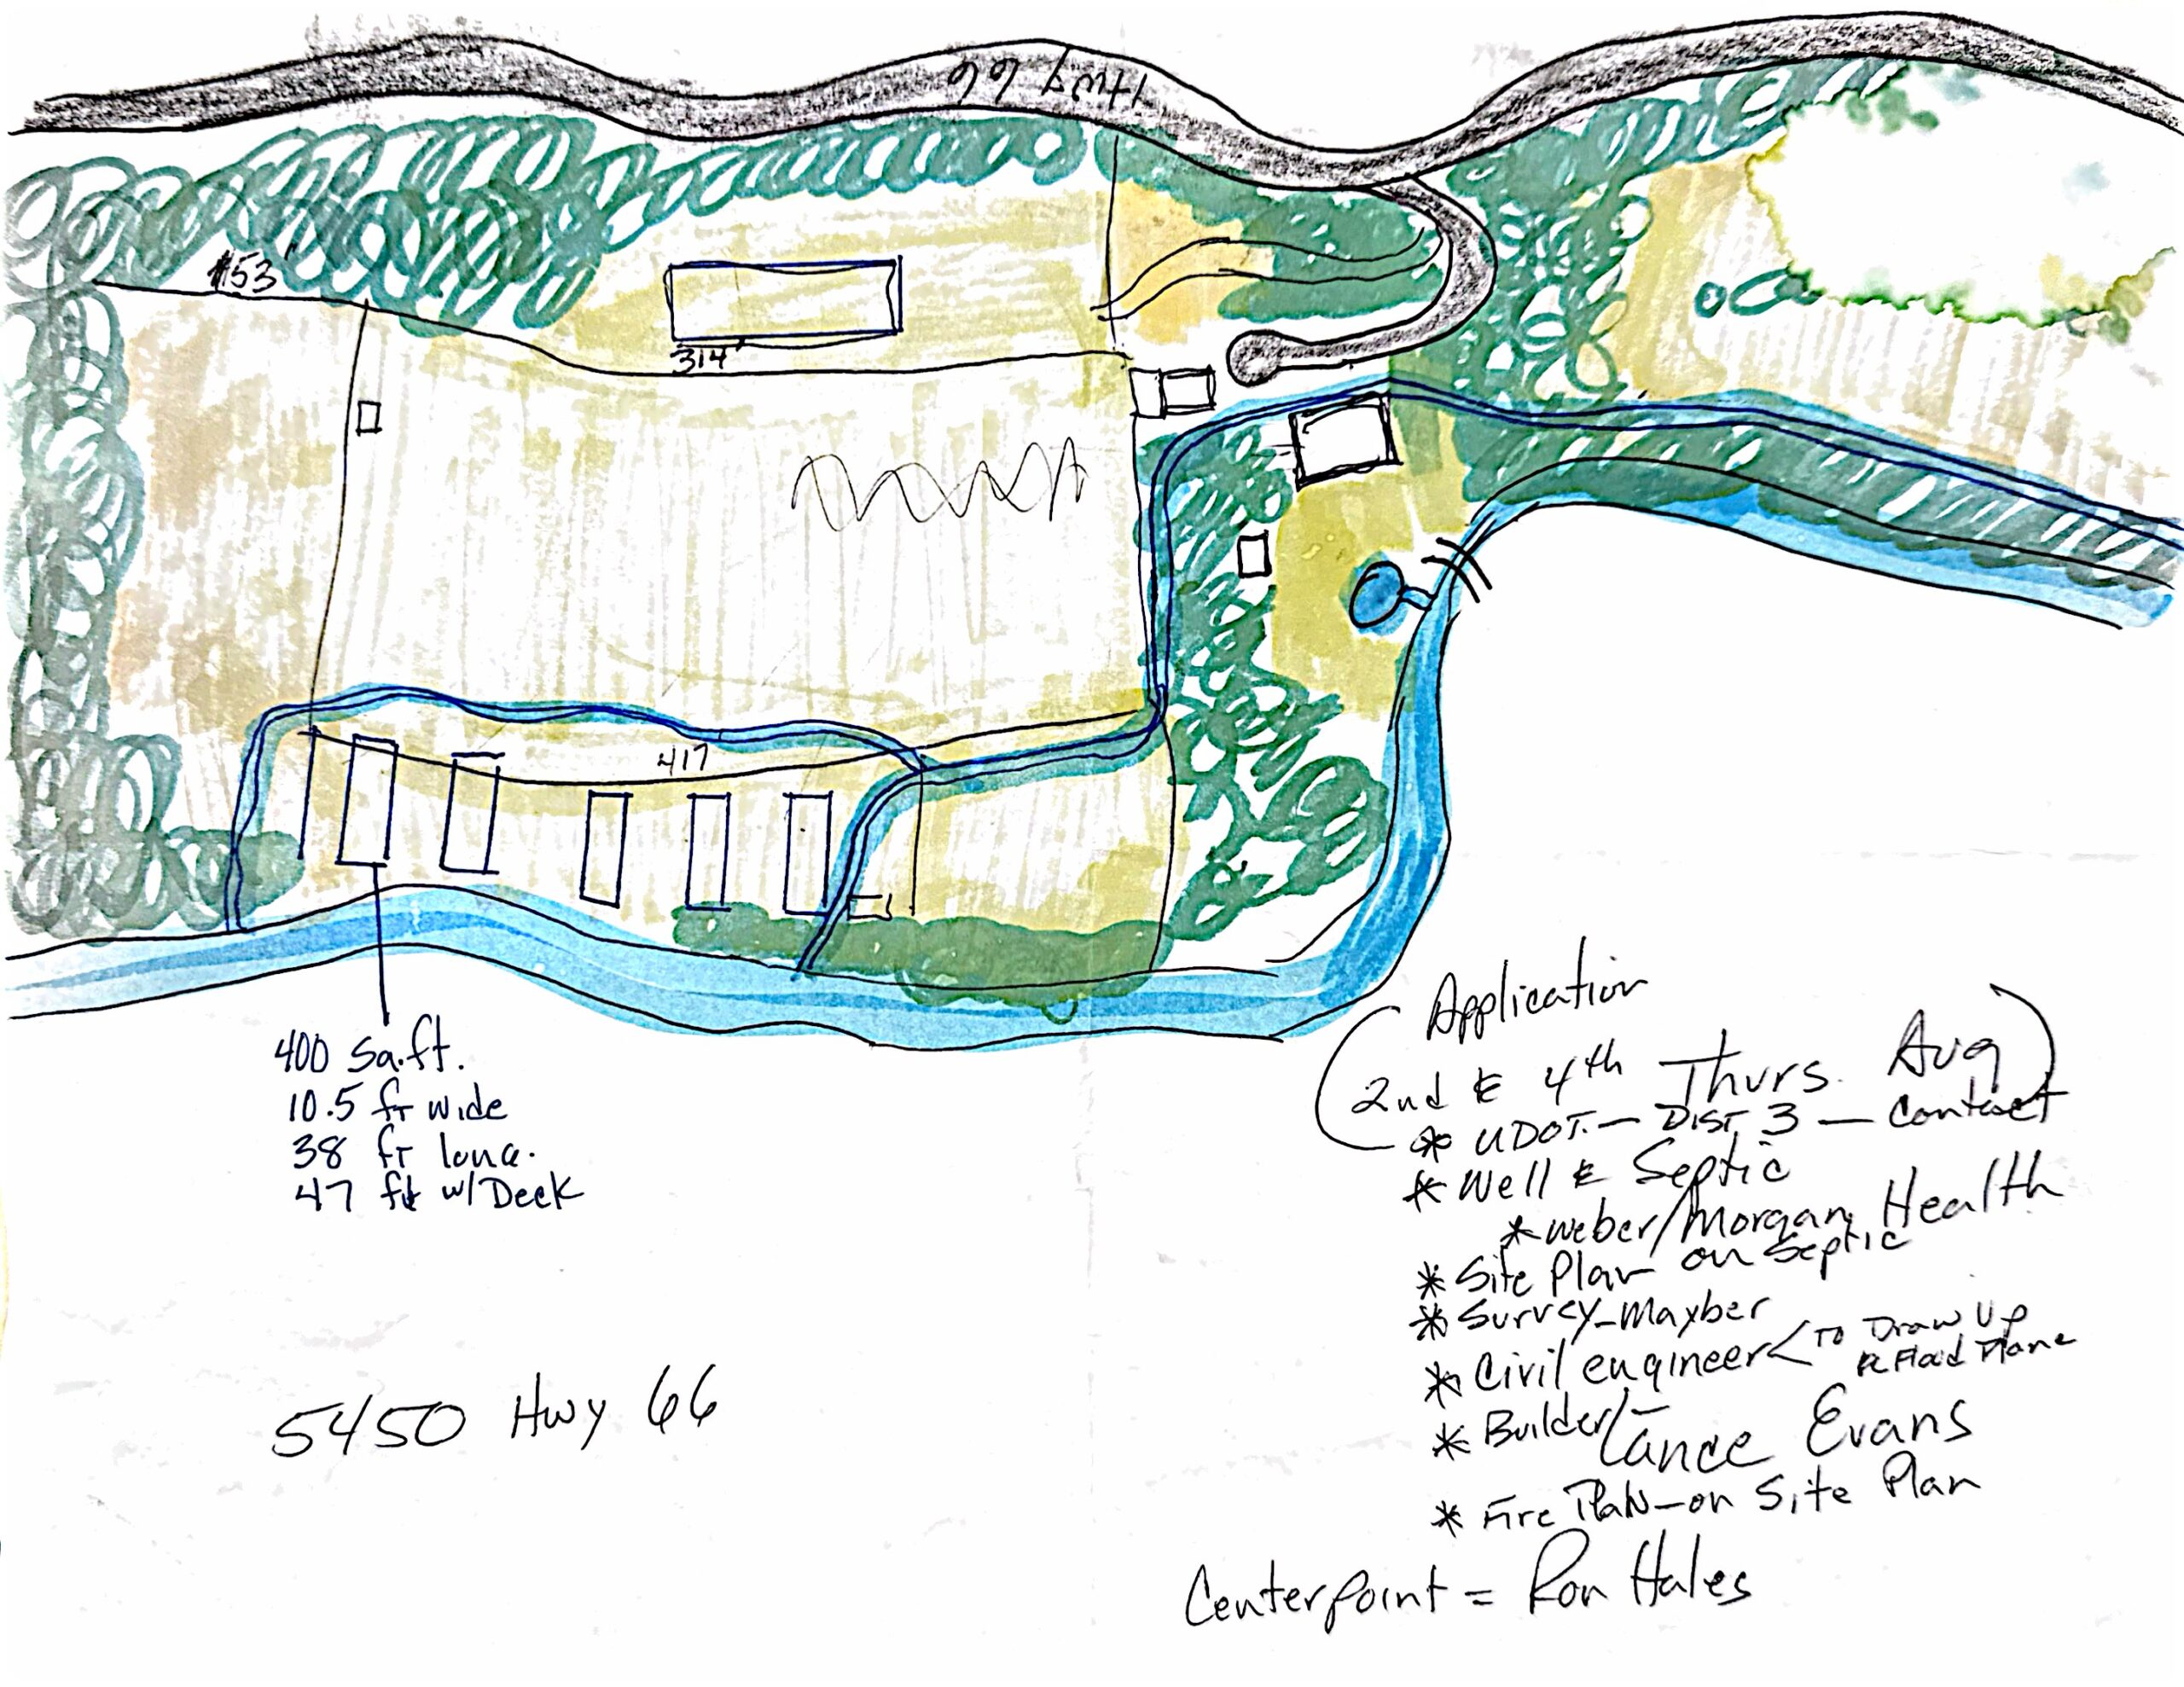 Hwy 66
153'
314'
417
400 Sq.ft.
10.5 ft wide
38 ft long.
47 ft w/Deck
5450 Hwy 66
Application
2nd & 4th Thurs. Aug
* UDOT. — DIST 3 — Contact
* Well & Septic
* Weber/Morgan Health
* Site Plan on Septic
* Survey - Maxber
* Civil engineer < To Draw Up
Flood Plane
* Builder / Lance Evans
* Fire Plan - on Site Plan
Centerpoint = Ron Hales